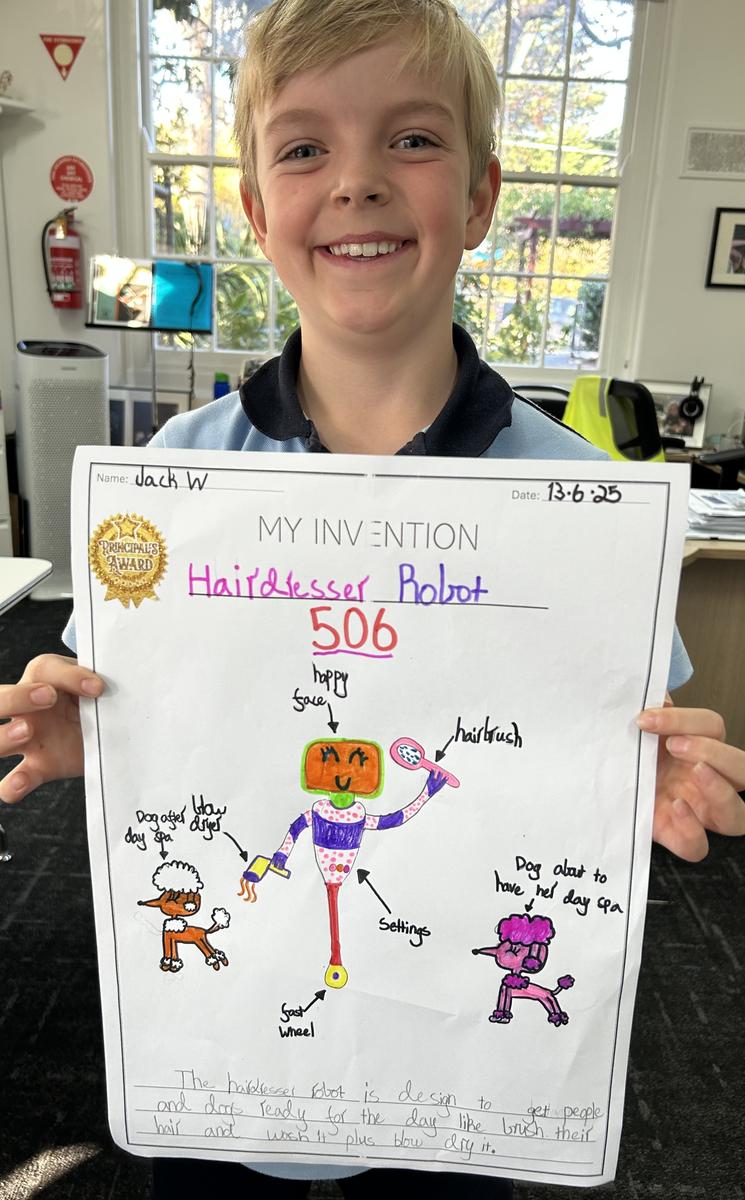 Name: Jack W
Date: 13.6.25
MY INVENTION
PRINCIPAL'S
AWARD
Hairdresser Robot
506
happy
face
hairbrush
blow
dryer
Dog after
day spa
Dog about to
have her day spa
Settings
fast
wheel
The hairdresser robot is design to get people
and dogs ready for the day like brush their
hair and wash it plus blow dry it.